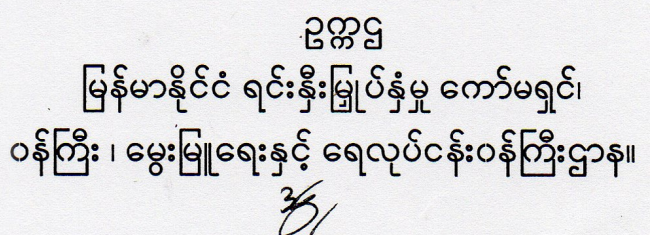 ဥက္ကဌ
မြန်မာနိုင်ငံ ရင်းနှီးမြှုပ်နှံမှု ကော်မရှင်၊
ဝန်ကြီး ၊ မွေးမြူရေးနှင့် ရေလုပ်ငန်းဝန်ကြီးဌာန။